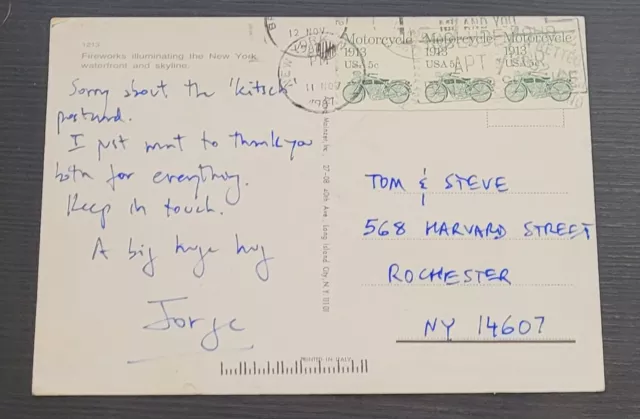 1813
Fireworks illuminating the New York
waterfront and skyline.
Sorry about the "kitsch"
postcard.
I just want to thank you
both for everything.
Keep in touch.
A big huge hug
Jorge
12 NOV
NEW YORK
PM
11 NOV
1987
Motorcycle
1913
USA 5c
Motorcycle
1913
USA 5c
Motorcycle
1913
USA 5c
27-08 40th Ave., Long Island City, N.Y. 11101
TOM & STEVE
568 HARVARD STREET
ROCHESTER
NY 14607
PRINTED IN ITALY